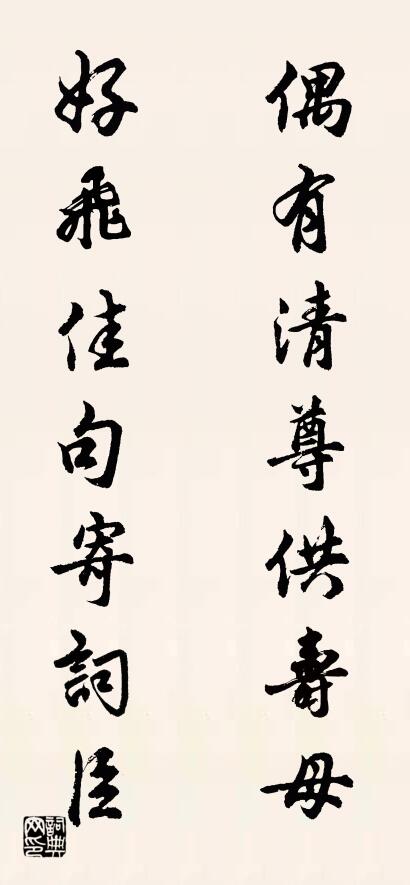 偶有清尊供壽母
好飛佳句寄詞臣
詞典网印